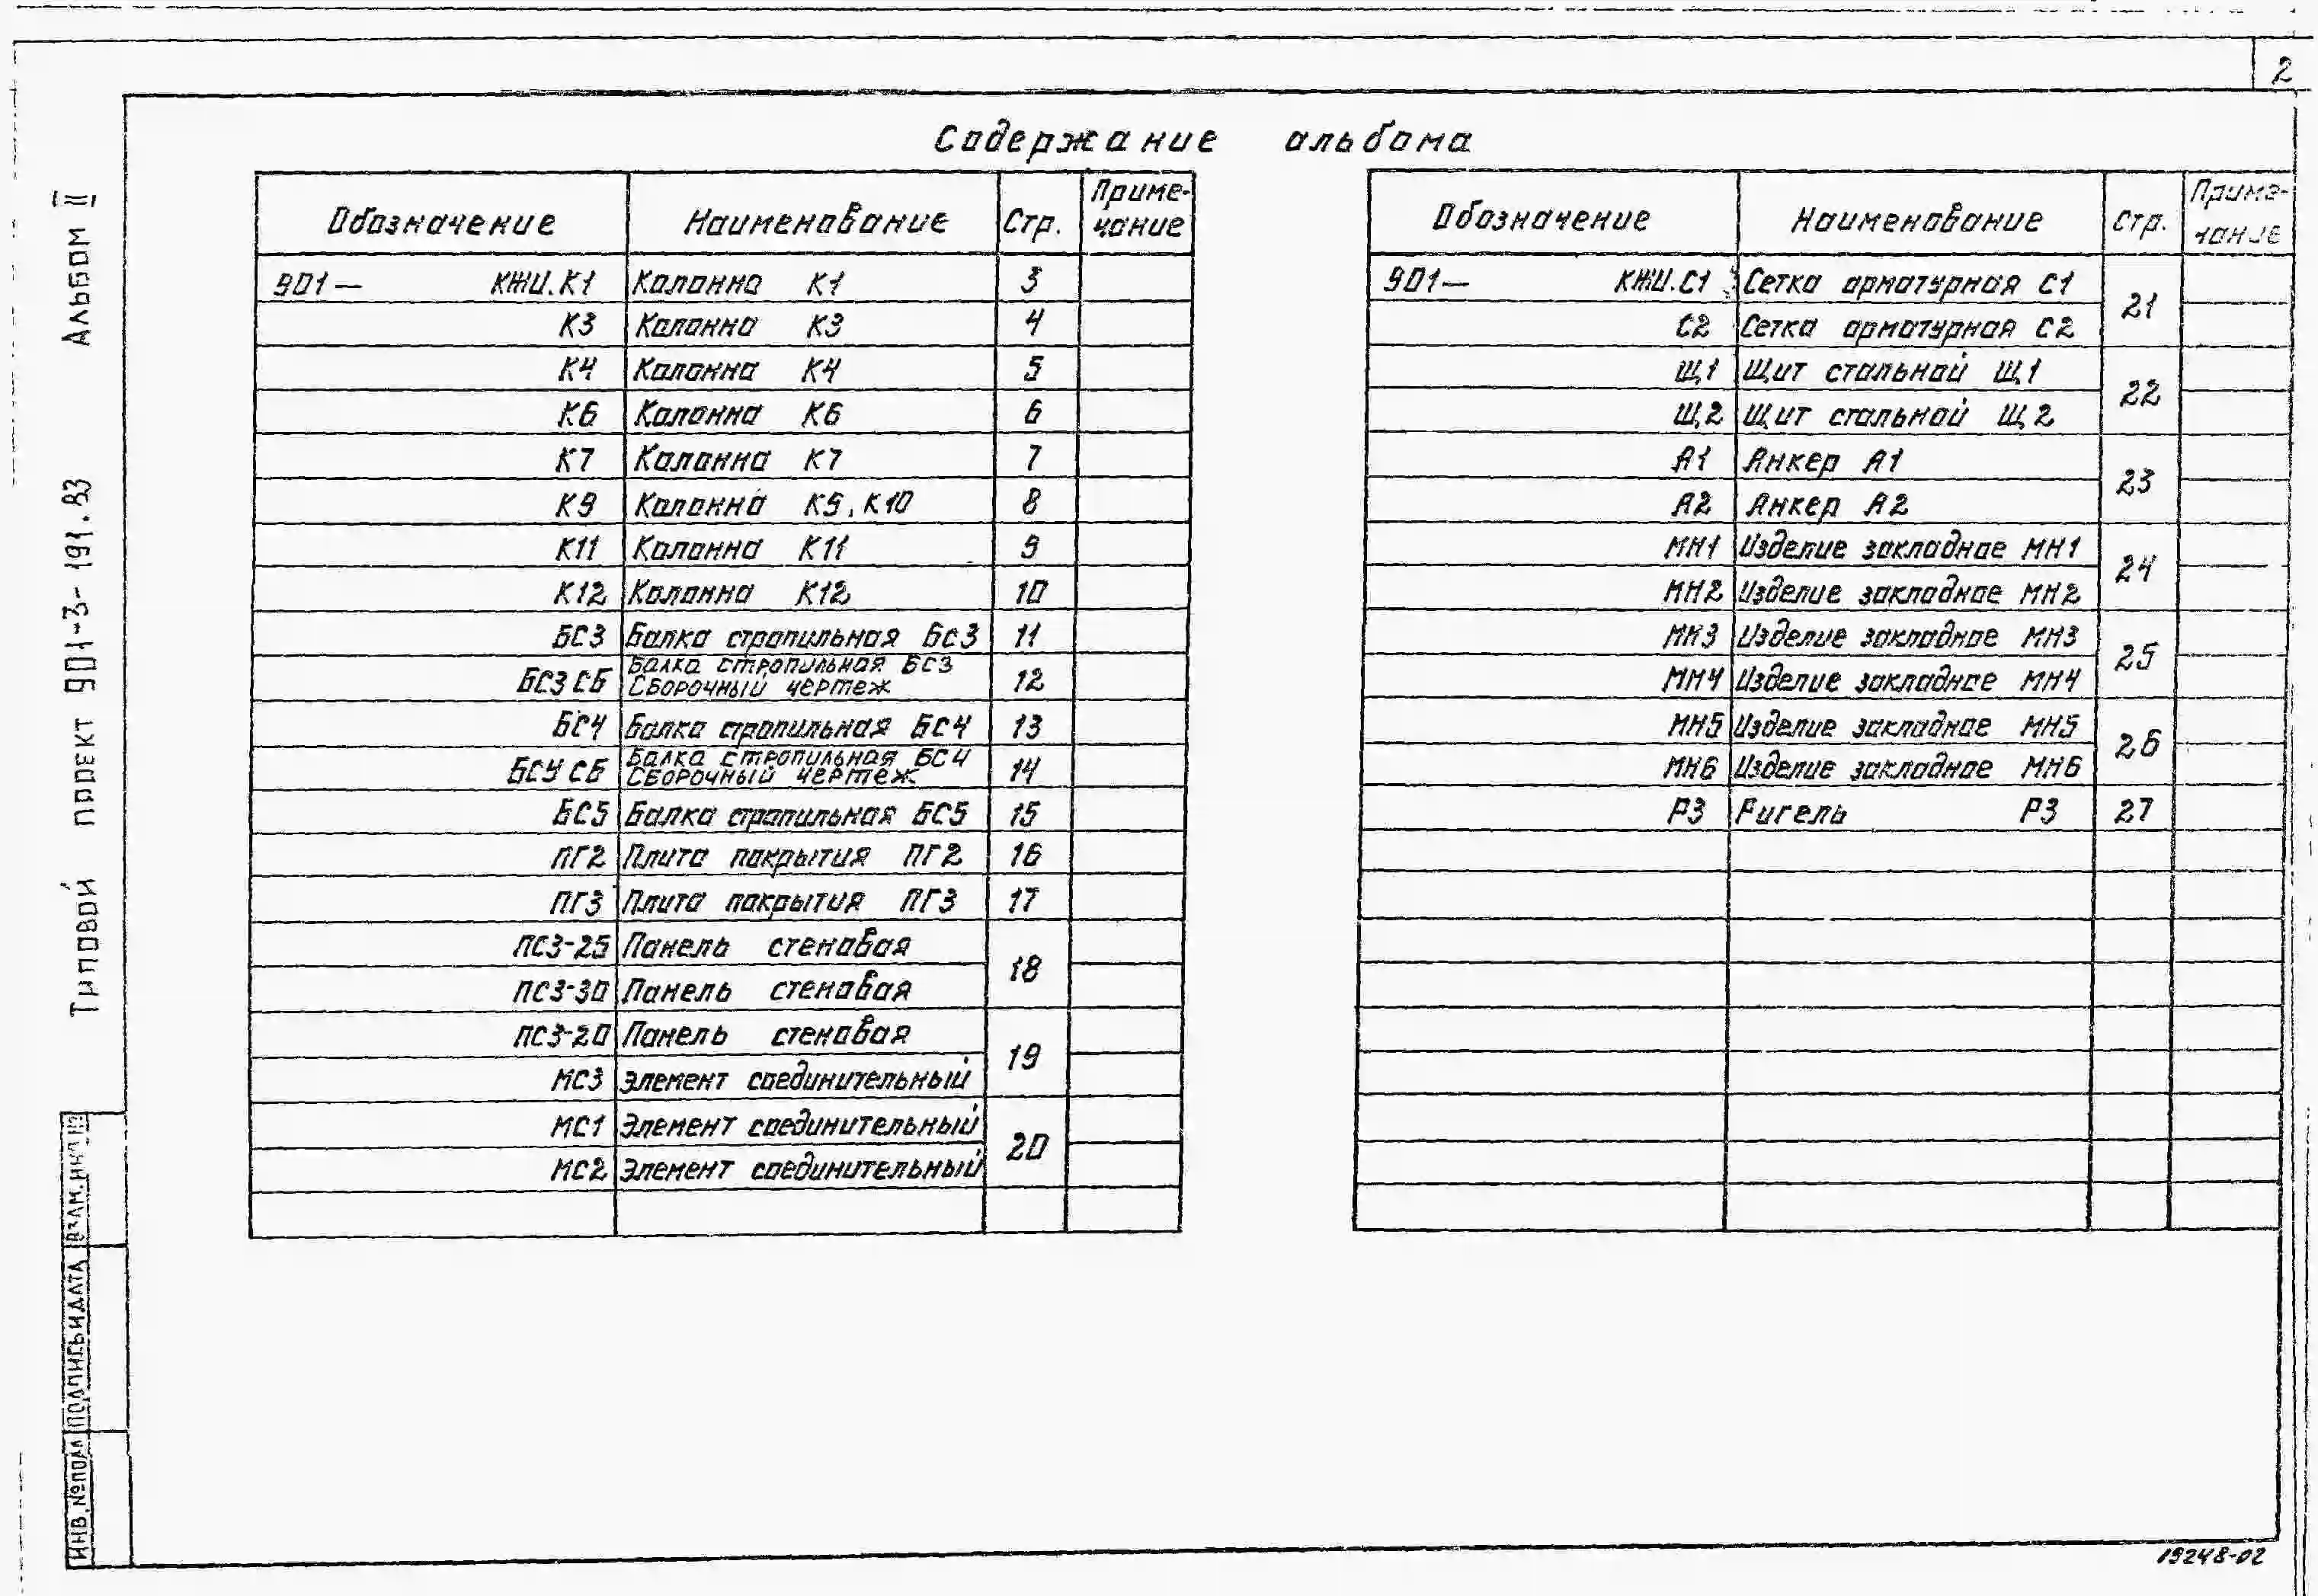 2
Содержание альбома
Обозначение Наименование Стр. Приме-
чание
901— КЖИ.К1 Колонна К1 3
К3 Колонна К3 4
К4 Колонна К4 5
К6 Колонна К6 6
К7 Колонна К7 7
К9 Колонна К9, К10 8
К11 Колонна К11 9
К12 Колонна К12 10
БС3 Балка стропильная БС3 11
БС3 СБ Балка стропильная БС3
Сборочный чертеж 12
БС4 Балка стропильная БС4 13
БС4 СБ Балка стропильная БС4
Сборочный чертеж 14
БС5 Балка стропильная БС5 15
ПГ2 Плита покрытия ПГ2 16
ПГ3 Плита покрытия ПГ3 17
ПС3-25 Панель стеновая
18
ПС3-30 Панель стеновая
ПС3-20 Панель стеновая
19
МС3 Элемент соединительный
МС1 Элемент соединительный
20
МС2 Элемент соединительный
Обозначение Наименование Стр. Приме-
чание
901— КЖИ.С1 Сетка арматурная С1
21
С2 Сетка арматурная С2
Щ1 Щит стальной Щ1
22
Щ2 Щит стальной Щ2
А1 Анкер А1
23
А2 Анкер А2
МН1 Изделие закладное МН1
24
МН2 Изделие закладное МН2
МН3 Изделие закладное МН3
25
МН4 Изделие закладное МН4
МН5 Изделие закладное МН5
26
МН6 Изделие закладное МН6
Р3 Ригель Р3 27
Типовой проект 901-3-191.83 Альбом II
ИНВ.№ПОДЛ ПОДПИСЬ И ДАТА ВЗАМ.ИНВ.№
19248-02